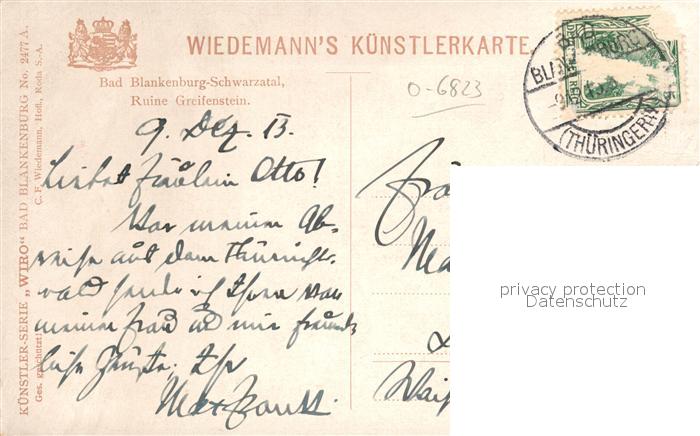 WIEDEMANN'S KÜNSTLERKARTE
Bad Blankenburg-Schwarzatal,
Ruine Greifenstein.
0-6823
9. Dez. 13.
Liebes Fräulein Otto!
Vor meiner Ab-
reise aus dem Thüring.
wald sende ich Ihnen von
meiner Frau und mir freund-
liche Grüße. Ihr
Max
KÜNSTLER-SERIE „WIRO" BAD BLANKENBURG No. 2477 A.
Ges. geschützt! C. F. Wiedemann, Hofl., Roda S.-A.
BAD BLANKENBURG
(THÜRINGERW.)
Frä
privacy protection
Datenschutz